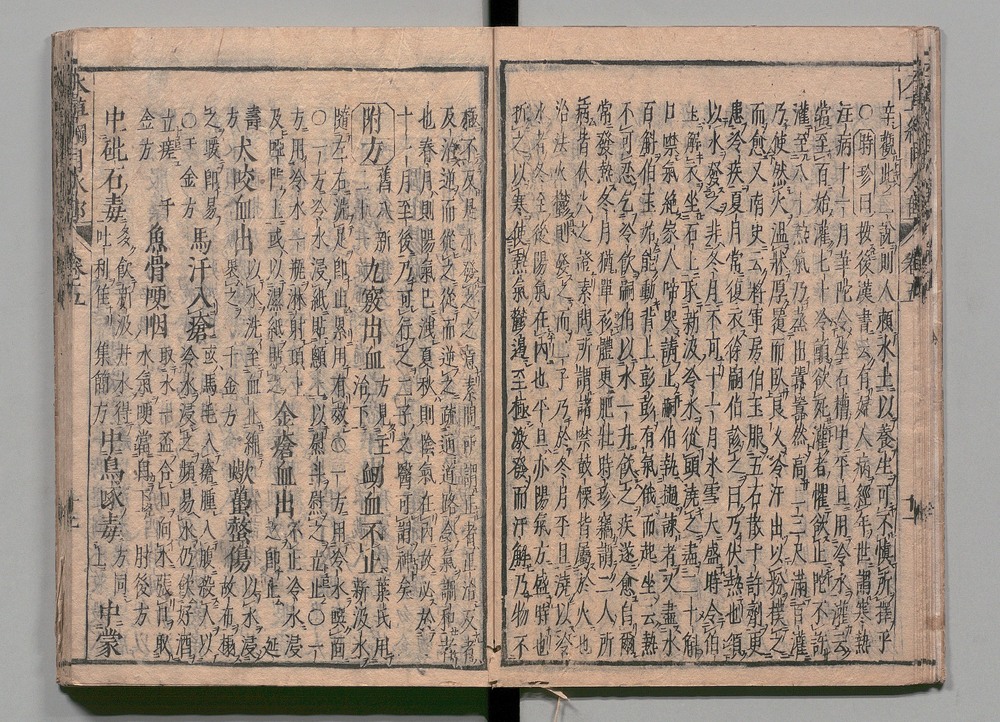 辛觀此二說則人頼水土以養生可不慎所擇乎
○時珍曰按後漢書云有婦人病經年世謂寒熱
注病十一月華陀令坐石槽中平旦用冷水灌云
當至百始灌七十冷顫欲死灌者懼欲止陀不許
灌至八十熱氣乃蒸出囂囂然高二三尺滿百灌
乃使然火溫牀厚覆而臥良久冷汗出以粉撲之
而愈又南史云將軍房伯玉服五石散十許劑更
患冷疾夏月常復衣徐嗣伯診之曰乃伏熱也須
以水發之非冬月不可十一月氷雪大盛時令伯
玉解衣坐石上取新汲冷水從頭澆之盡二十斛
口噤氣絶家人啼哭請止嗣伯執撾諫者又盡水
百斛伯玉始能動背上彭彭有氣俄而起坐云熱
不可忍乞冷飲嗣伯以水一升飲之疾遂愈自爾
常發熱冬月猶單衫體更肥壯時珍竊謂二人所
病皆伏火之證素問所謂諸禁鼓慄皆屬於火也
治法火鬱則發之而二子乃於冬月平旦澆以冷
水者冬至後陽氣在內也平旦亦陽氣方盛時也
折之以寒使熱氣鬱遏至極激發而汗解乃物不
極不反是亦發之之意素問所謂正者正治反者
反治逆而從之從而逆之疏通道路令氣調和者
也春月則陽氣已洩夏秋則陰氣在內故必於
十一月至後乃可行之二子之醫可謂神矣
附方 舊八新二十一 九竅出血 方見主治下 衄血不止 葉氏用新汲水
隨左右洗足即止累用有效○一方用冷水噀面○一方冷水浸紙貼顖上以熨斗熨之立止○一
方用冷水一瓶淋射頂上及啞門上或以濕紙貼之 金瘡血出 不止冷水浸之即止 延
壽方 犬咬血出 以水洗至血止綿裹之千金方 蠍蠆螫傷 以水浸故布搨
之暖即易○千金方 馬汗入瘡 或馬毛入瘡腫入腹殺人以冷水浸之頻易水仍飲好酒
立瘥千金方 魚骨哽咽 取水一盃合口向水張口取水氣哽當自下肘後方
中砒石毒 多飲新汲井水得吐利佳 集簡方 中烏喙毒 方同上 中蒙